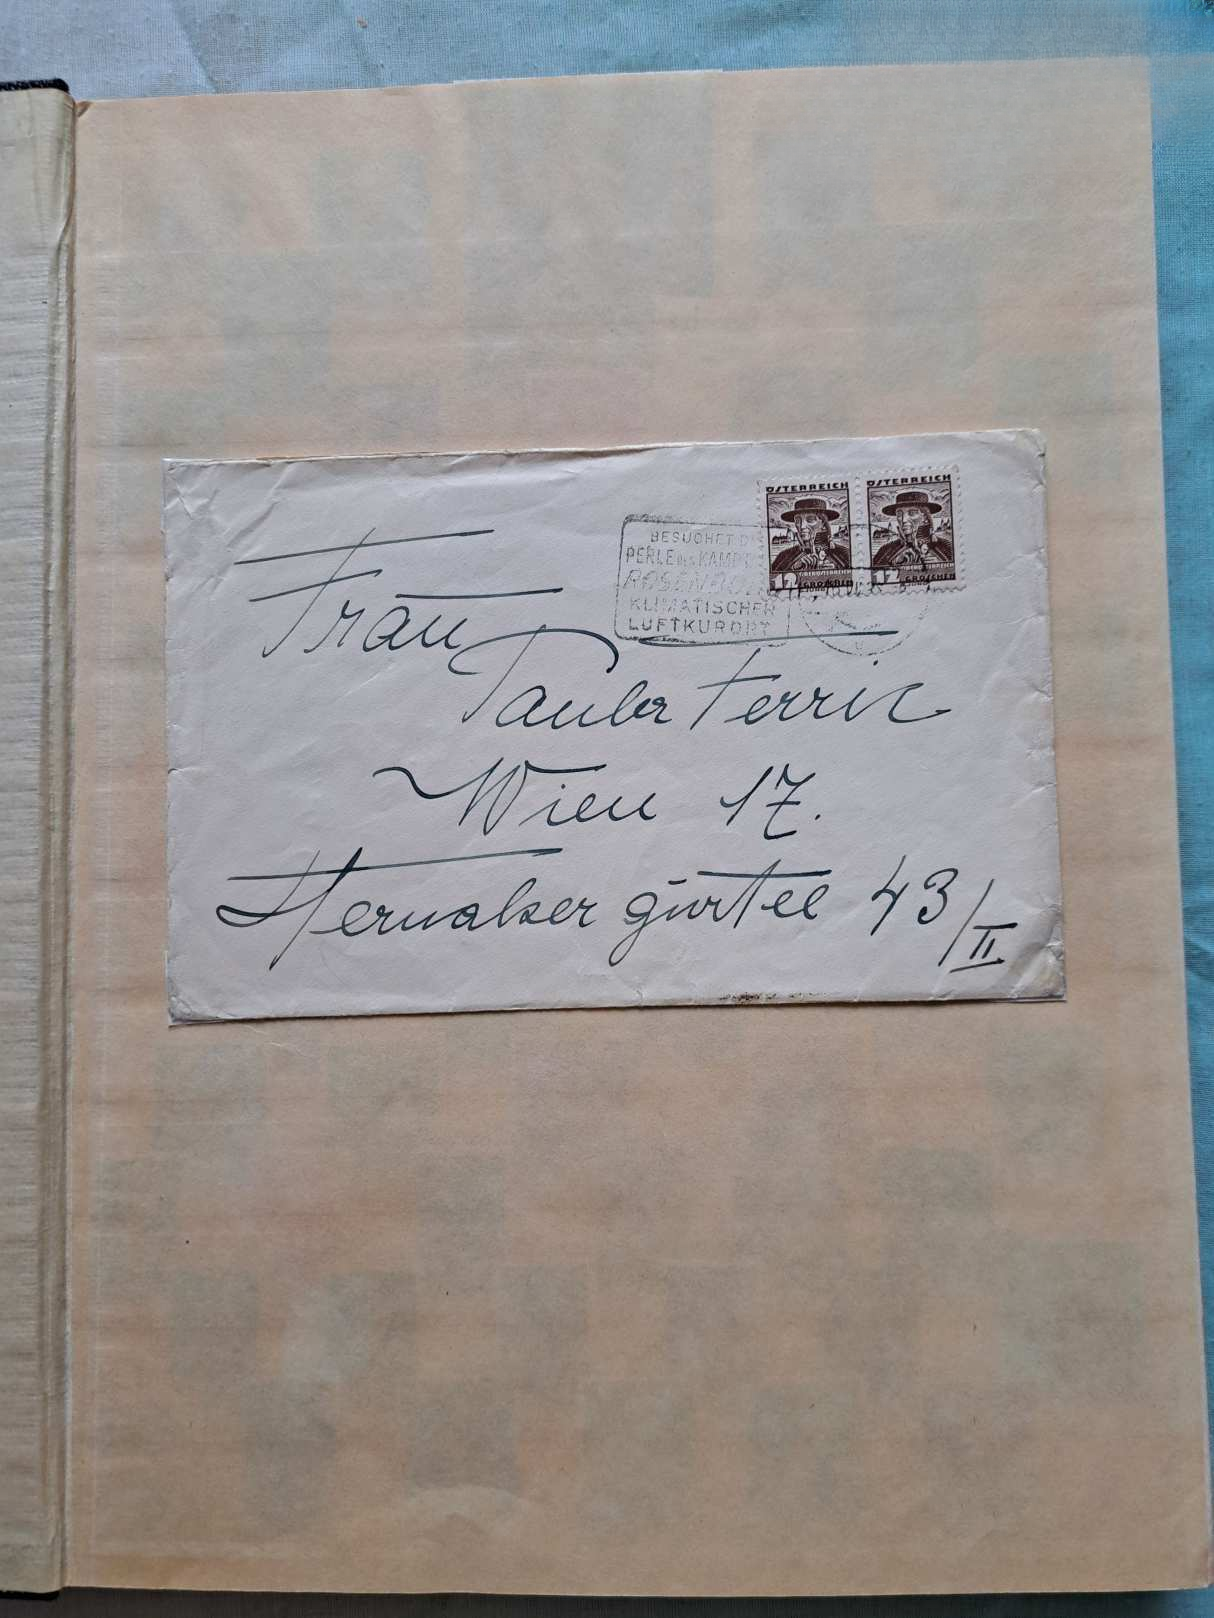 ÖSTERREICH ÖSTERREICH
12 OBERÖSTERREICH 12 OBERÖSTERREICH
GROSCHEN GROSCHEN
BESUCHET DIE
PERLE DES KAMPT
ROSENBURG
KLIMATISCHER
LUFTKURORT
Frau
Ferric
Wien 17.
Hernalser gürtel 43/II